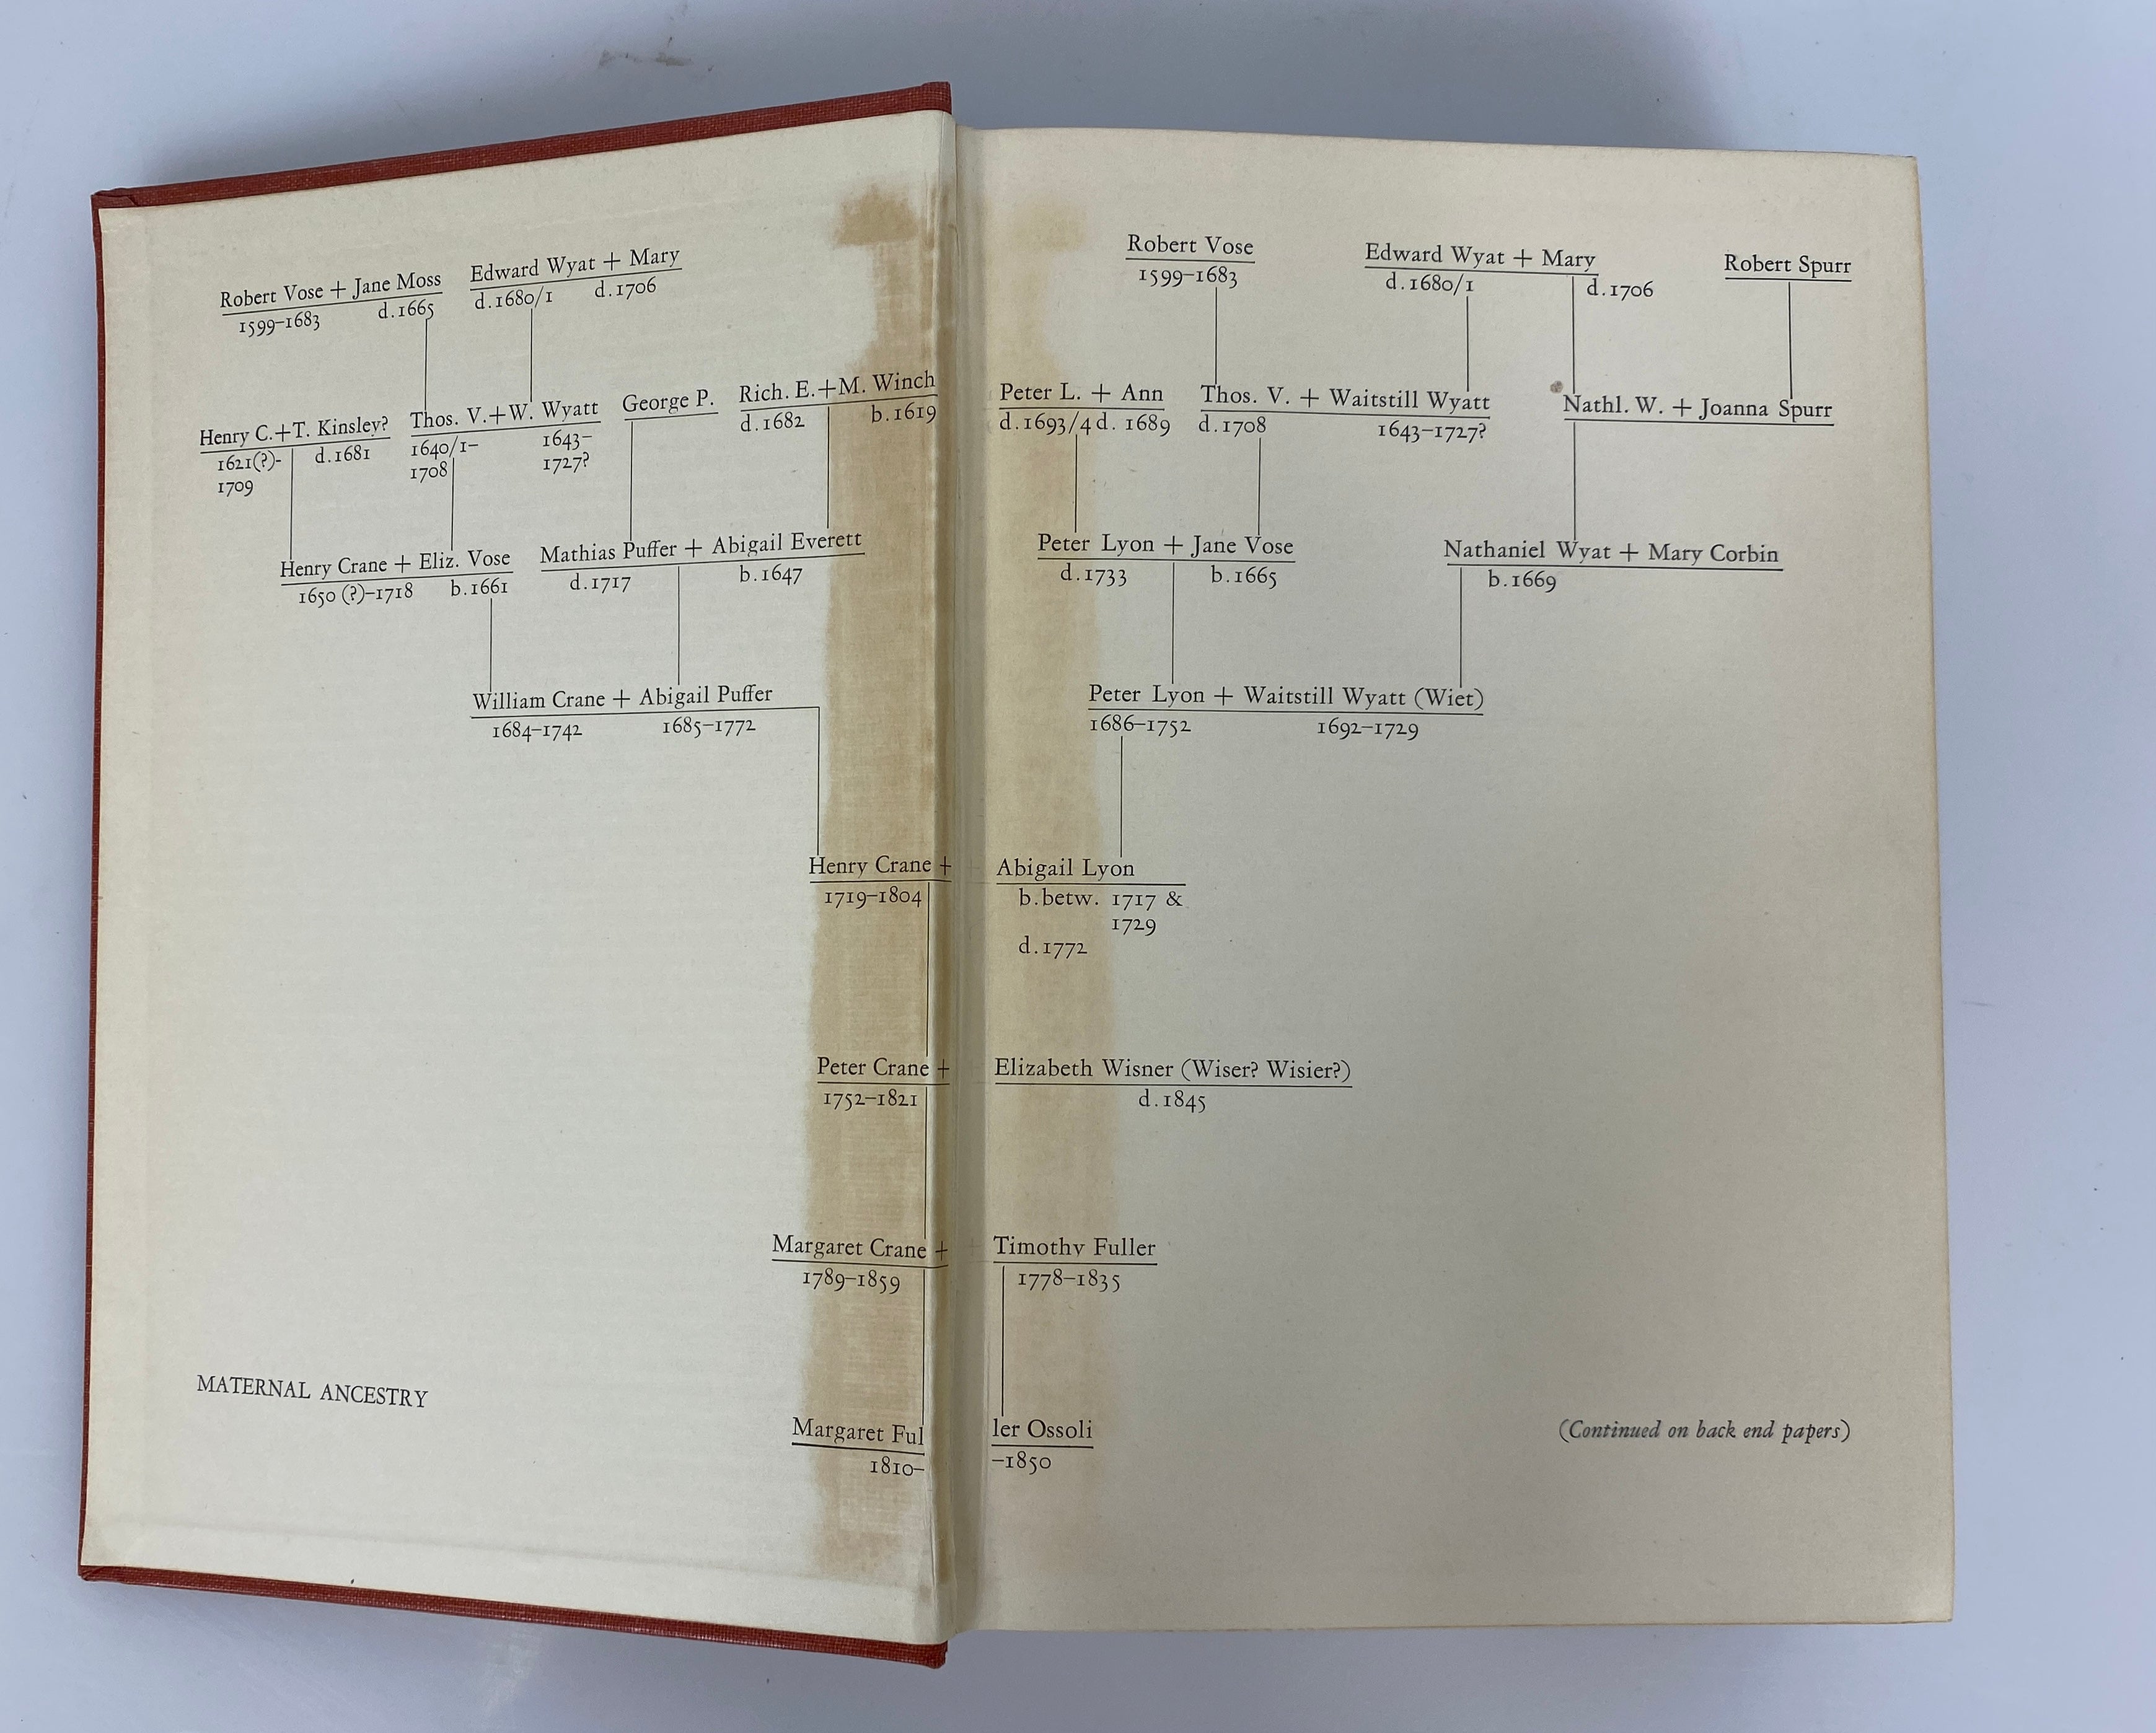 Robert Vose + Jane Moss
1599–1683 d.1665
Edward Wyat + Mary
d.1680/1 d.1706
Henry C.+T. Kinsley?
1621(?)- d.1681
1709
Thos. V.+W. Wyatt
1640/1– 1643–
1708 1727?
George P.
Rich. E.+M. Winch
d.1682 b.1619
Henry Crane + Eliz. Vose
1650 (?)–1718 b.1661
Mathias Puffer + Abigail Everett
d.1717 b.1647
William Crane + Abigail Puffer
1684–1742 1685–1772
Henry Crane +
1719–1804
Peter Crane +
1752–1821
Margaret Crane +
1789–1859
MATERNAL ANCESTRY
Margaret Ful
1810–
Robert Vose
1599–1683
Edward Wyat + Mary
d.1680/1 d.1706
Robert Spurr
Peter L. + Ann
d.1693/4 d. 1689
Thos. V. + Waitstill Wyatt
d.1708 1643–1727?
Nathl. W. + Joanna Spurr
Peter Lyon + Jane Vose
d.1733 b.1665
Nathaniel Wyat + Mary Corbin
b.1669
Peter Lyon + Waitstill Wyatt (Wiet)
1686–1752 1692–1729
Abigail Lyon
b.betw. 1717 &
1729
d.1772
Elizabeth Wisner (Wiser? Wisier?)
d.1845
Timothy Fuller
1778–1835
ler Ossoli
–1850
(Continued on back end papers)